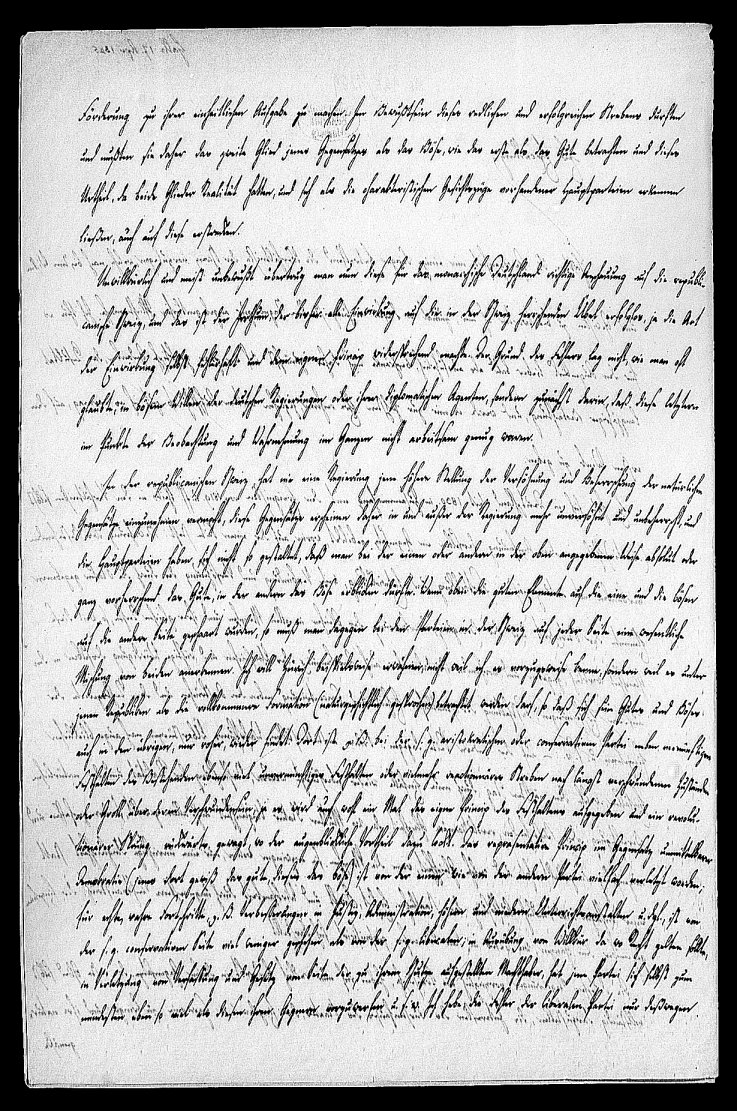 Förderung zu ihrer einheitlichen Aufgabe zu machen. Im Bewußtsein dieses redlichen und erfolgreichen Strebens durften
und mußten sie daher das zweite Glied jenes Gegensatzes als das Böse, wie das erste als das Gute betrachten und dieses
Urtheil, da beide Glieder Realität hatten, und sich als die charakteristischen Gesichtszüge vorhandener Hauptparteien erkennen
ließen, auch auf diese erstrecken.
Unwillkürlich und meist unbewußt übertrug man nun diese für das monarchische Deutschland richtige Anschauung auf die republi-
canische Schweiz, und das ist der der bisher alle Einwirkung auf die in der Schweiz herrschenden Übel erfolglos, ja die Art
der Einwirkung selbst fehlerhaft und dem eignen Prinzip widersprechend machte. Der Grund des Fehlers lag nicht, wie man oft
glaubte, in bösem Willen der deutschen Regierungen oder ihrer diplomatischen Agenten, sondern zunächst darin, daß diese letztern
im Punkte der Beobachtung und Wahrnehmung im Ganzen nicht arbeitsam genug waren.
In der republicanischen Schweiz hat nie eine Regierung jene höhere Stellung der Versöhnung und Beherrschung der natürlichen
Gegensätze einzunehmen vermocht, diese Gegensätze erscheinen daher in und außer der Regierung mehr unversöhnt und unbeherrscht, und
die Hauptparteien haben sich nicht so gestaltet, daß man bei der einen oder andern in der oben angegebenen Weise absolut oder
ganz vorherrschend das Gute, in der andern das Böse erblicken dürfte. Wenn oben die guten Elemente auf die eine und die bösen
auf die andere Seite geschaart wurden, so muß man dagegen bei den Parteien in der Schweiz auf jeder Seite eine wesentliche
Mischung von beiden anerkennen. Ich will Zürich beispielsweise erwähnen, nicht weil ich es vorzugsweise kenne, sondern weil es unter
jenen Republiken als die vollkommenere Formation (naturgeschichtlich gesprochen) betrachtet werden darf, so daß sich sein Gutes und Böses
auch in den übrigen, nur roher, wieder findet. Dort ist z. B. bei der s. g. aristokratischen oder conservativen Partei neben vernünftigem
Festhalten des Bestehenden ebenso viel unvernünftiges Festhalten oder vielmehr reactionäres Streben nach längst verschwundenen Zuständen
oder Groll über deren Verschwundensein, ja es wird auch wohl ein Mal das eigne Prinzip des Festhaltens aufgegeben und ein revolu-
tionärer gewagt, wo der augenblickliche Vortheil dazu lockt. Das repräsentative Prinzip im Gegensatz unmittelbarer
Demokratie (jenes dort gewiß das gute, dieses das böse) ist von der einen wie von der andern Partei vielfach verletzt worden;
für ächte, wahre Fortschritte, z. B. Verbesserungen in Justiz, Administration, höhern und niedern Unterrichtsanstalten u. dgl., ist von
der s. g. conservativen Seite viel weniger geschehen als von der s. g. liberalen; in Ausübung von Willkür da wo Recht gelten sollte,
in Verletzung von Verfassung und Gesetz von Seiten der zu ihrem Schutze aufgestellten Machthaber, hat jene Partei sich selbst zum
mindesten eben so viel als diesen ihren Gegnern vorzuwerfen u. s. w. Ich habe die Fehler der liberalen Partei nur deßwegen